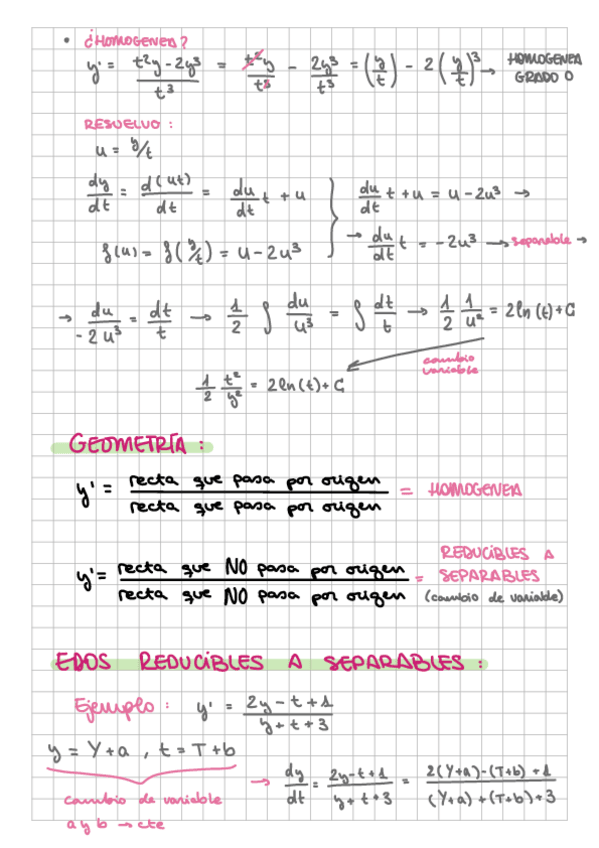 • ¿HOMOGENEA?
y' = (t²y - 2y³)/t³ = t²y/t³ - 2y³/t³ = (y/t) - 2(y/t)³ → HOMOGENEA GRADO 0
RESUELVO :
u = y/t
dy/dt = d(ut)/dt = du/dt t + u } du/dt t + u = u - 2u³ →
f(u) = f(y/t) = u - 2u³ → du/dt t = -2u³ → separable →
→ du/-2u³ = dt/t → 1/2 ∫ du/u³ = ∫ dt/t → 1/2 1/u² = 2ln(t)+C
cambio variable
1/2 t²/y² = 2ln(t)+C
GEOMETRÍA :
y' = recta que pasa por origen / recta que pasa por origen = HOMOGENEA
y' = recta que NO pasa por origen / recta que NO pasa por origen = REDUCIBLES A SEPARABLES (cambio de variable)
EDOS REDUCIBLES A SEPARABLES :
Ejemplo : y' = (2y - t + 1)/(y + t + 3)
y = Y+a , t = T+b
→ dy/dt = (2y-t+1)/(y+t+3) = (2(Y+a)-(T+b)+1)/((Y+a)+(T+b)+3)
cambio de variable
a y b → cte